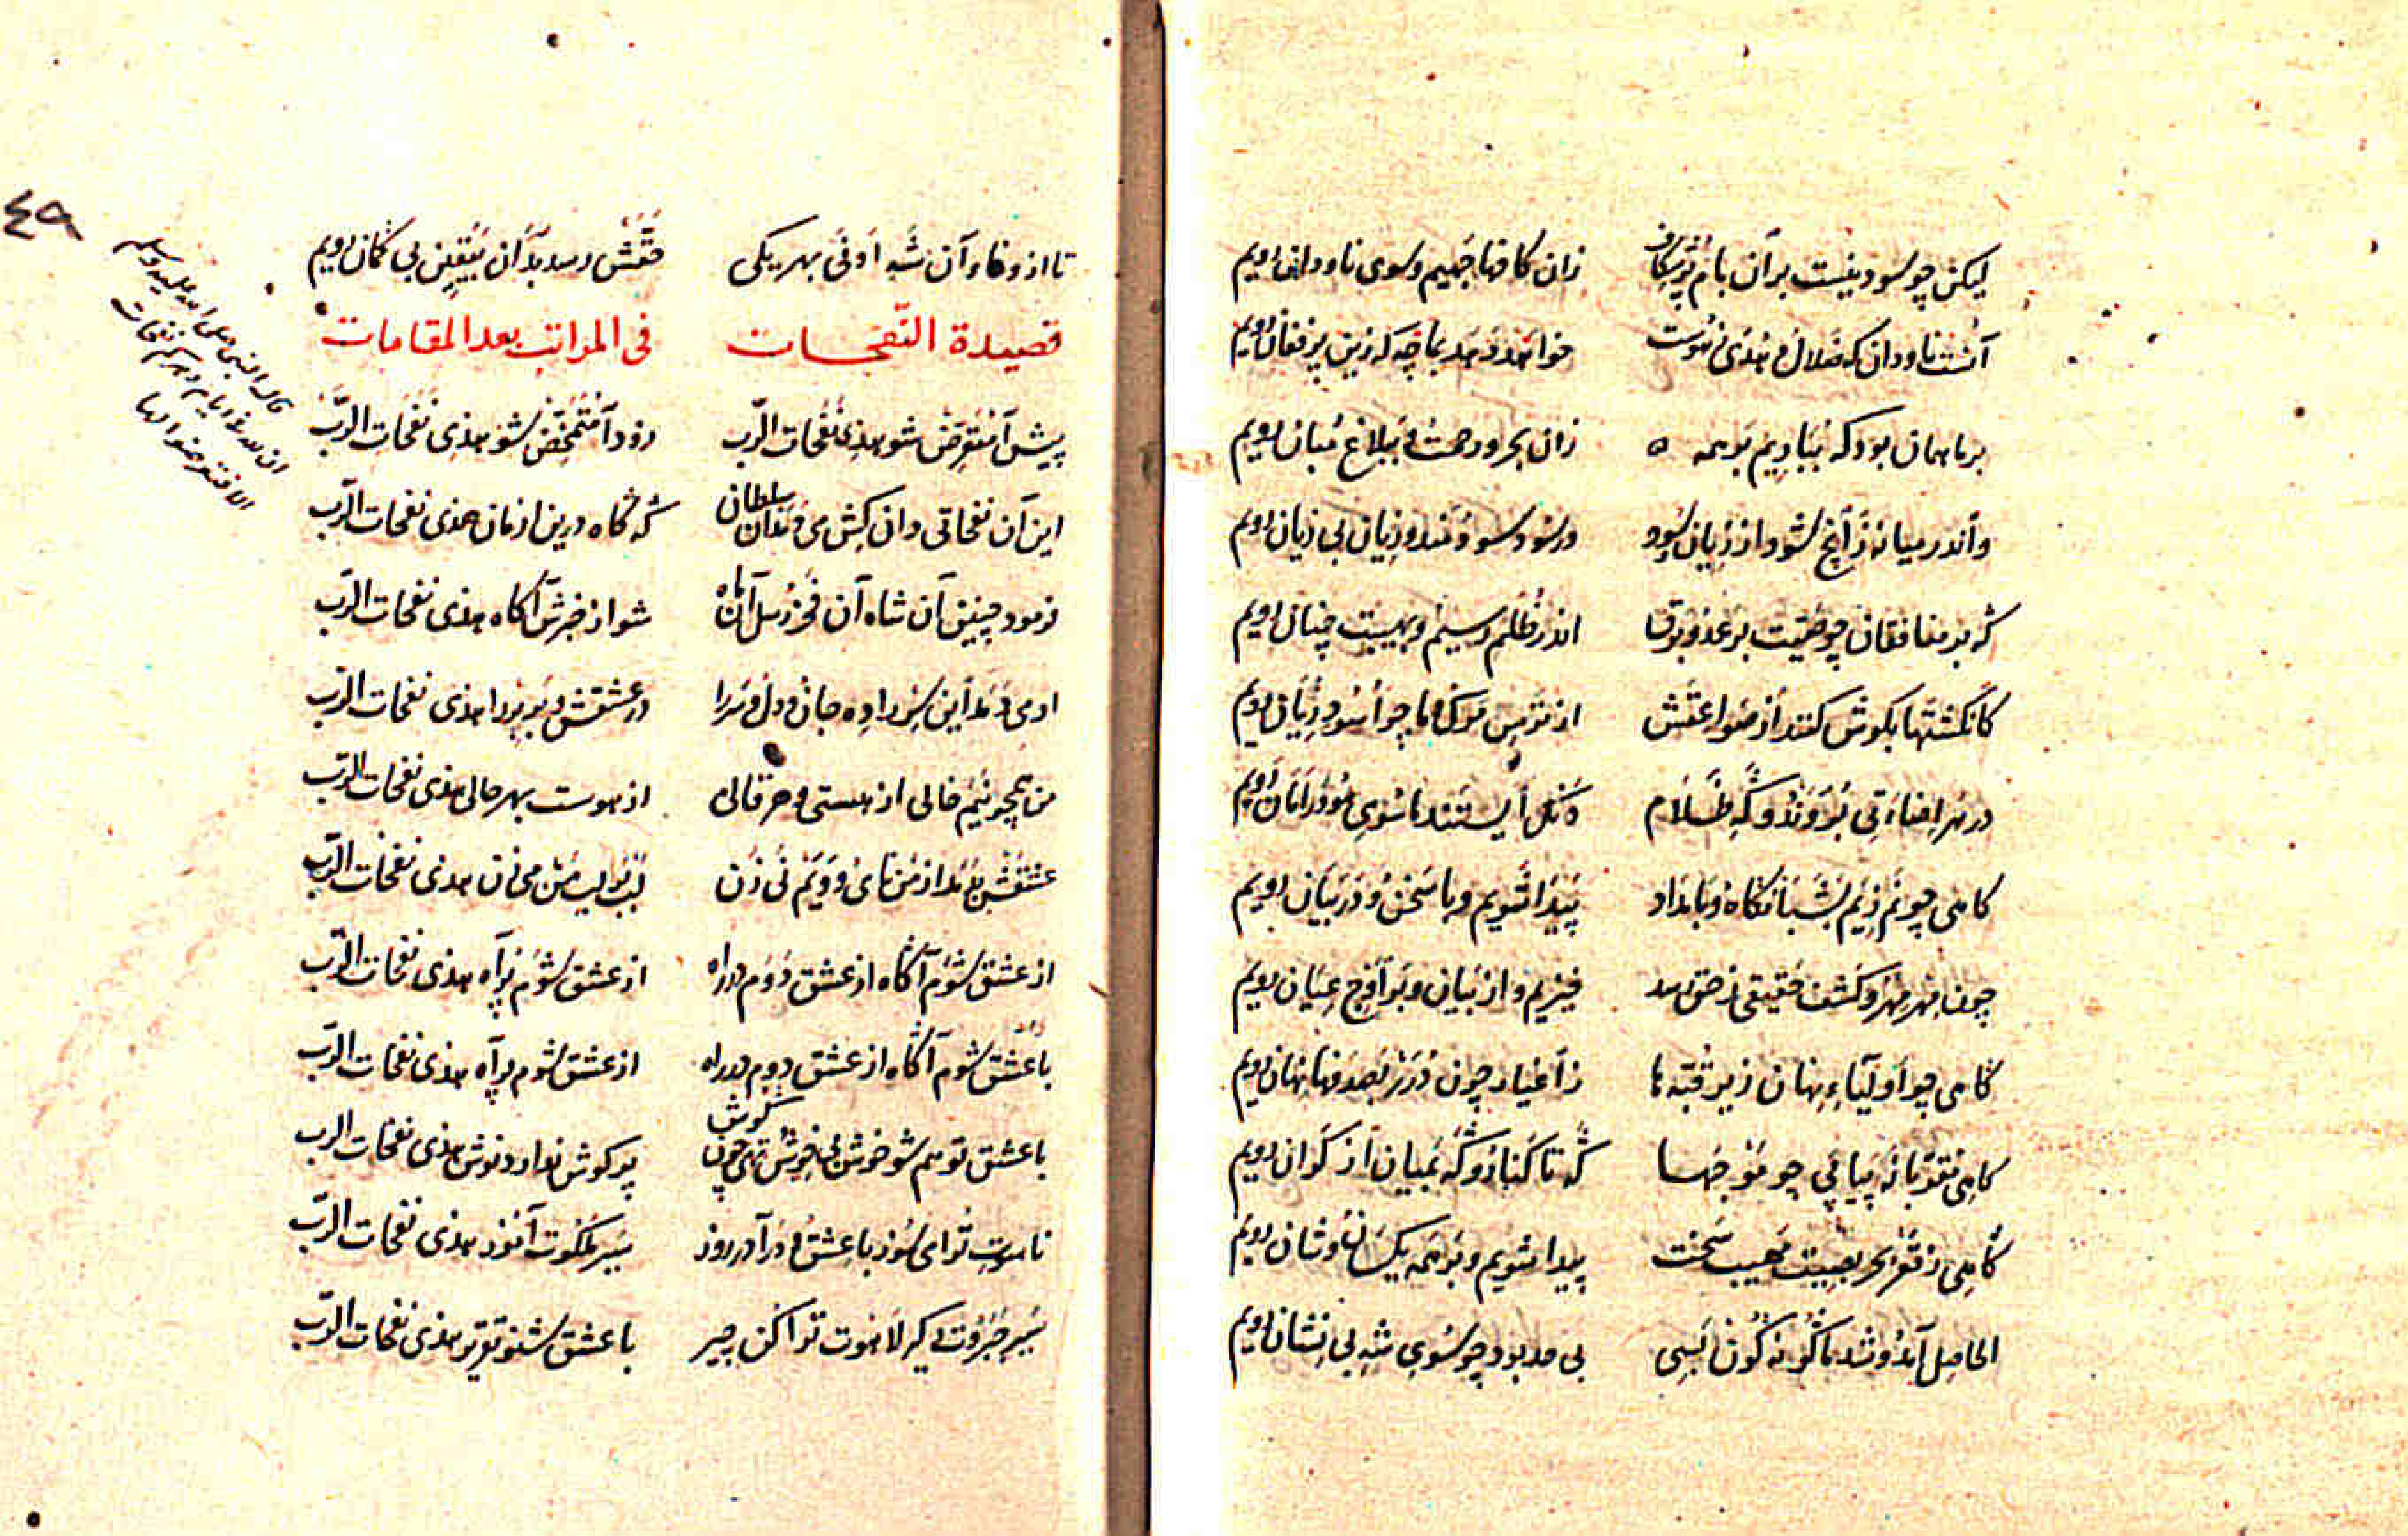 لیکن چو سود نیست بر آن بام پرشکاف زان کافها جهیم و سوی ناودان رویم
آنست ناودان که ضلال و هدی نموست خوانند بما چه که زین پر فغان رویم
بر ما همان بود که بباریم بر همه زان بحر و رحمت و ببلاغ مبان رویم
واندر میانه زانچ شود از زیان سود در سود سودمند و زیان بی زیان رویم
که بر منافقان چو صیت بر عد و برق اندر ظلم رسیم و بهیبت چنان رویم
کانکشتها بکوش کنند از صواعقش از ترس مرک و ما چو اسود ژیان رویم
در هر اضاءتی بروند و که ظلام دنکل ایستند ما سوی خود امان رویم
کاهی چو نم زنیم بشبانکاه و بامداد پیدا شویم و با سخن و در بیان رویم
چون مهر مهر و کشف حقیقی ز حق رسد خیزیم و از بیان و بر اوج عیان رویم
کاهی چو اولیاء نهان زیر قبه ها ز اغیار چون درر بصدفها نهان رویم
کاهی نقربانه پیاپی چو موجها که تا کنار و که بمیان از کران رویم
کاهی ز قعر بحر بهیبت مهیب سخت پیدا شویم و بر همه یکسان وشان رویم
الحاصل آمد و شد ما کونه کون بسی بی حد بود چو سوی شه بی نشان رویم
تا از وفاء آن شه اوفی بهر یکی حقش رسد بدآن بیقین بی کمان رویم
قصیدة النفحات فی المراتب بعد المقامات
پیش آ متعرض شو هذی نفحات الرب رو د آ متمخض شو هذی نفحات الرب
این آن نفحاتی دان کش می وزد آن سلطان که کاه درین ازمان هذی نفحات الرب
فرمود چنین آن شاه آن فخر رسل آن ماه شو از خبرش آکاه هذی نفحات الرب
او می دمد این سر را ده جان و دل و سر را در عشقش و بر بر را هذی نفحات الرب
من همچو نیم خالی از هستی و هر قالی از هوست بهر حالی هذی نفحات الرب
عشقش دمد از من نای و ویم نی زن لب بر لب من می زن هذی نفحات الرب
از عشق شوم آکاه از عشق روم در راه از عشق شوم پر آه هذی نفحات الرب
با عشق شوم آکاه از عشق روم در راه از عشق شوم پر آه هذی نفحات الرب
با عشق تو هم شو خوش بی خویش تهی چون کوش پر کوش ندارد نوش هذی نفحات الرب
ناسوت ترا می سوز با عشق و در آ در روز سیر ملکوت آموز هذی نفحات الرب
سیر جبروت کیر لاهوت ترا کن چیر با عشق شنو تقریر هذی نفحات الرب
قال النبی صلی الله علیه وسلم
ان لله فی ایام دهرکم نفحات
الا فتعرضوا لها
٤٩